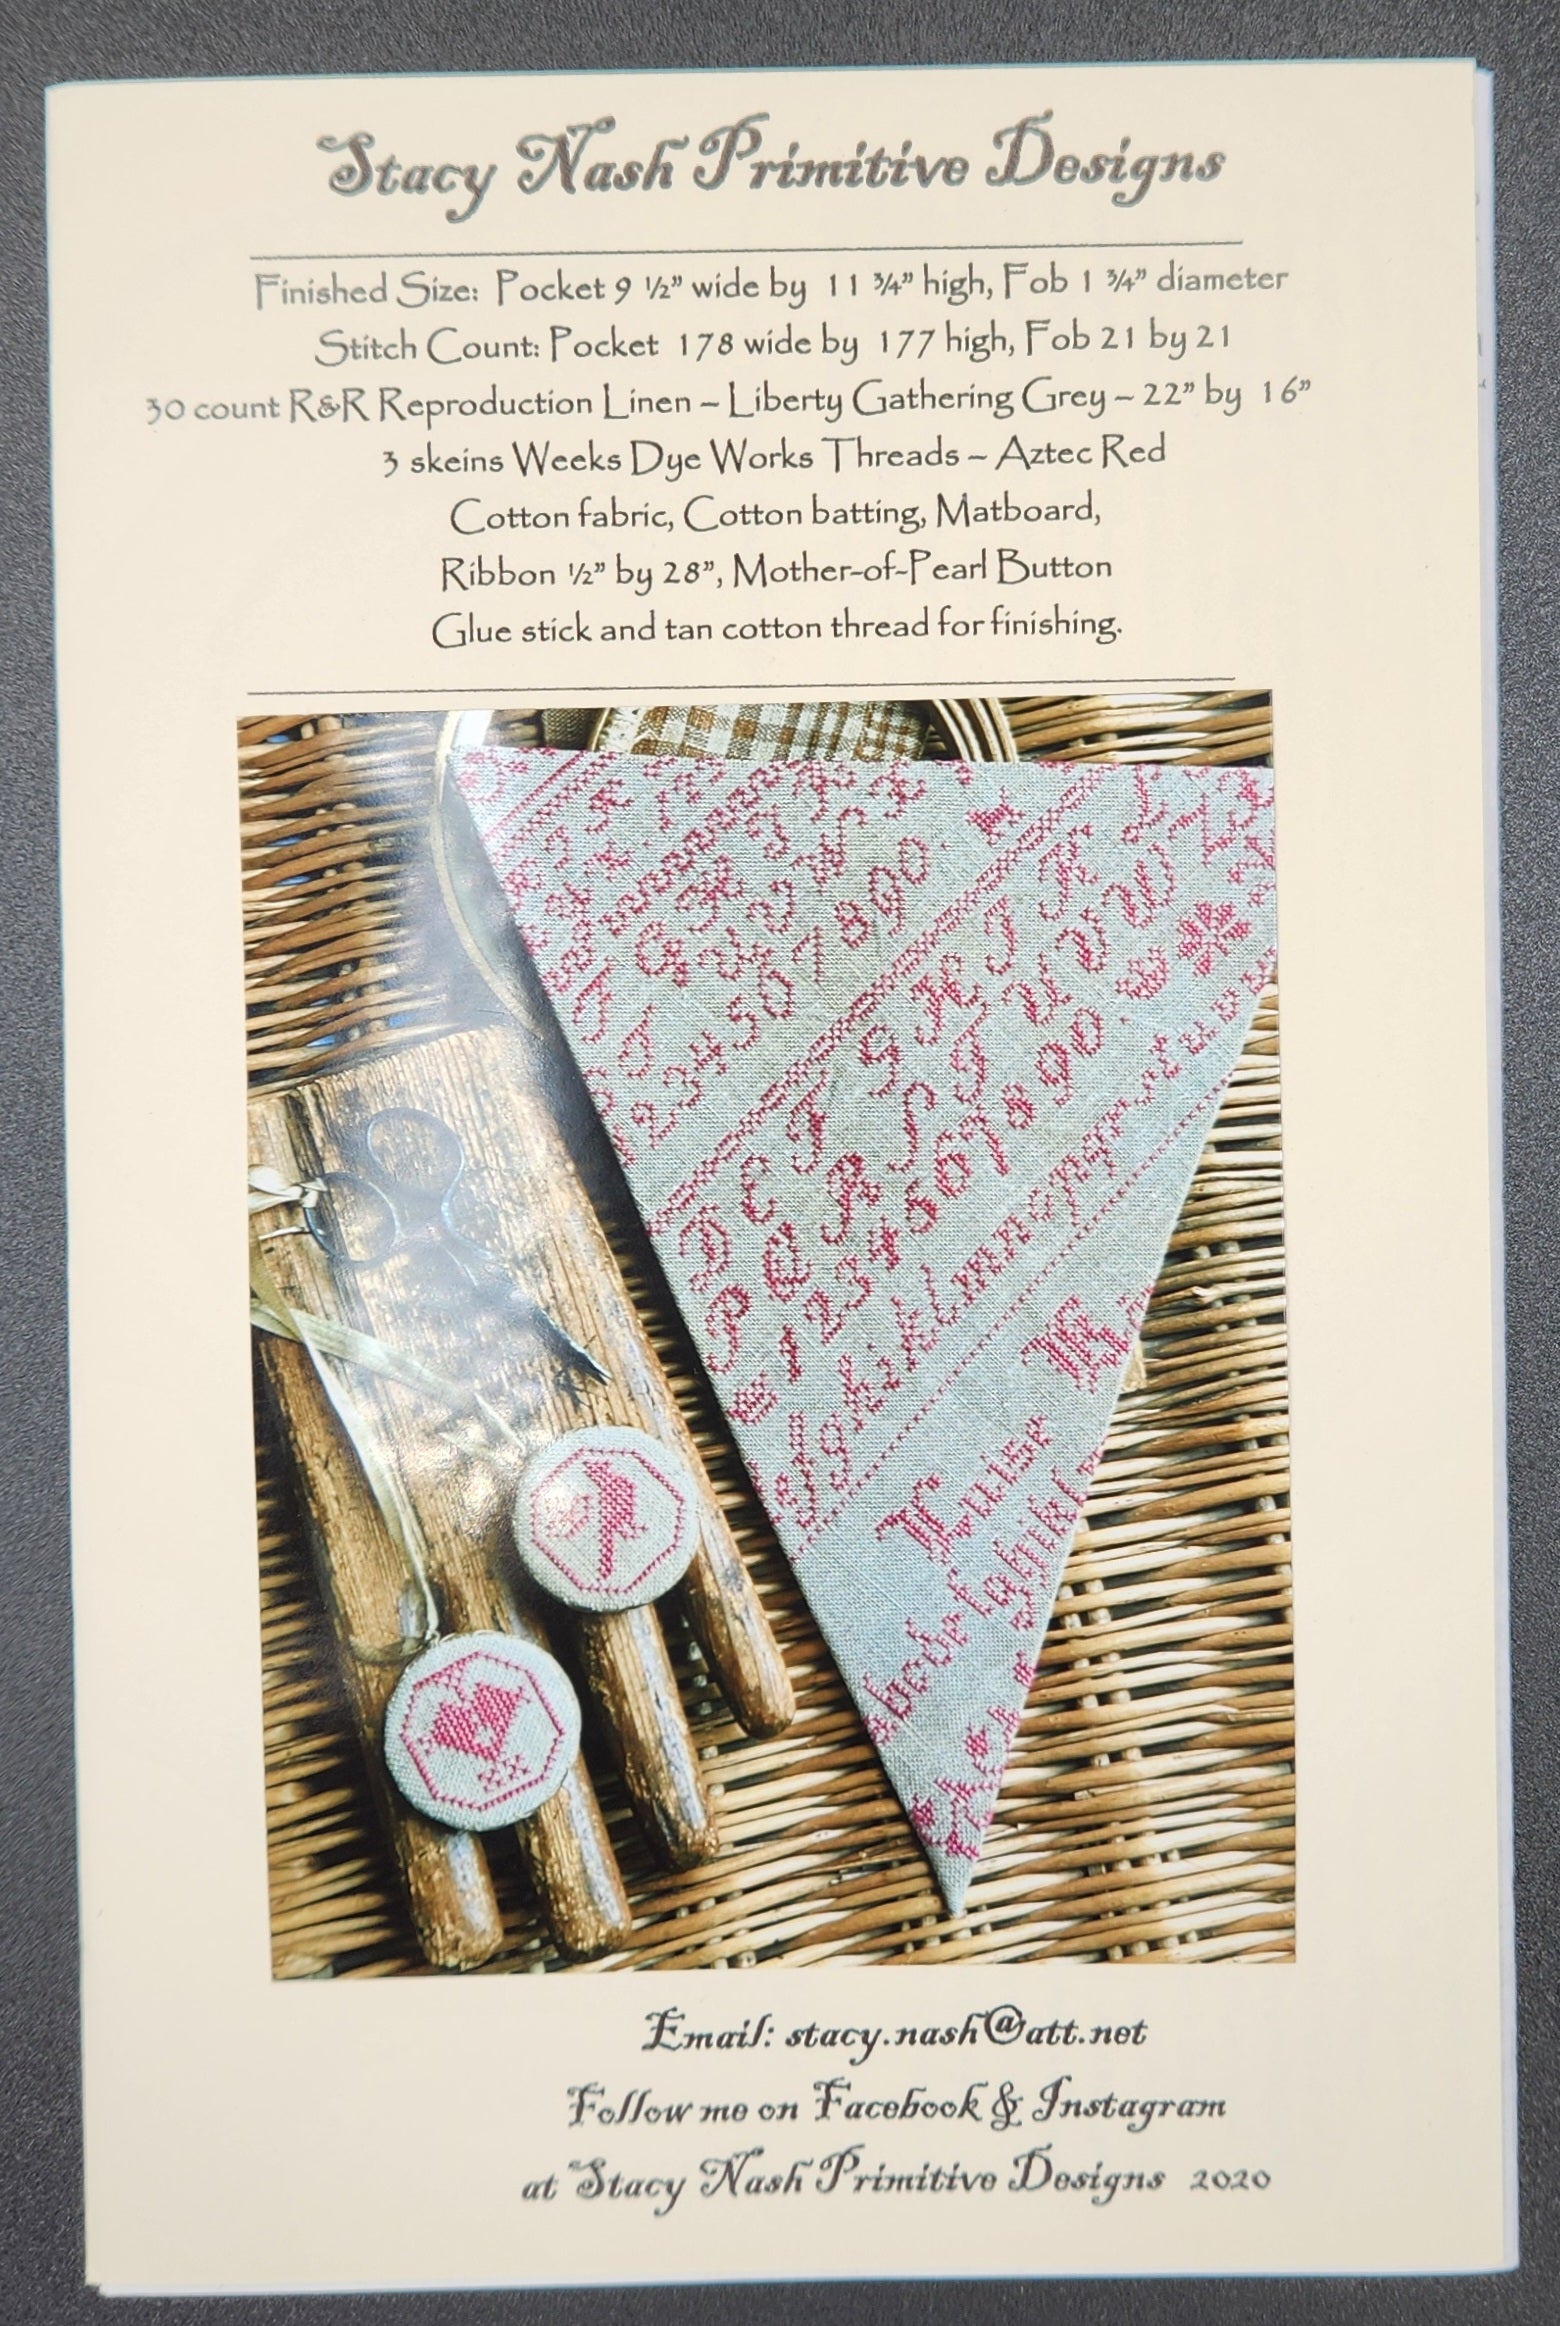 Stacy Nash Primitive Designs
Finished Size: Pocket 9 ½” wide by 11 ¾” high, Fob 1 ¾” diameter
Stitch Count: Pocket 178 wide by 177 high, Fob 21 by 21
30 count R&R Reproduction Linen – Liberty Gathering Grey – 22” by 16”
3 skeins Weeks Dye Works Threads – Aztec Red
Cotton fabric, Cotton batting, Matboard,
Ribbon ½” by 28”, Mother-of-Pearl Button
Glue stick and tan cotton thread for finishing.
234567890.
D E F G H I K L
P Q R S T U V W
1234567890.
Luise
Email: stacy.nash@att.net
Follow me on Facebook & Instagram
at Stacy Nash Primitive Designs 2020